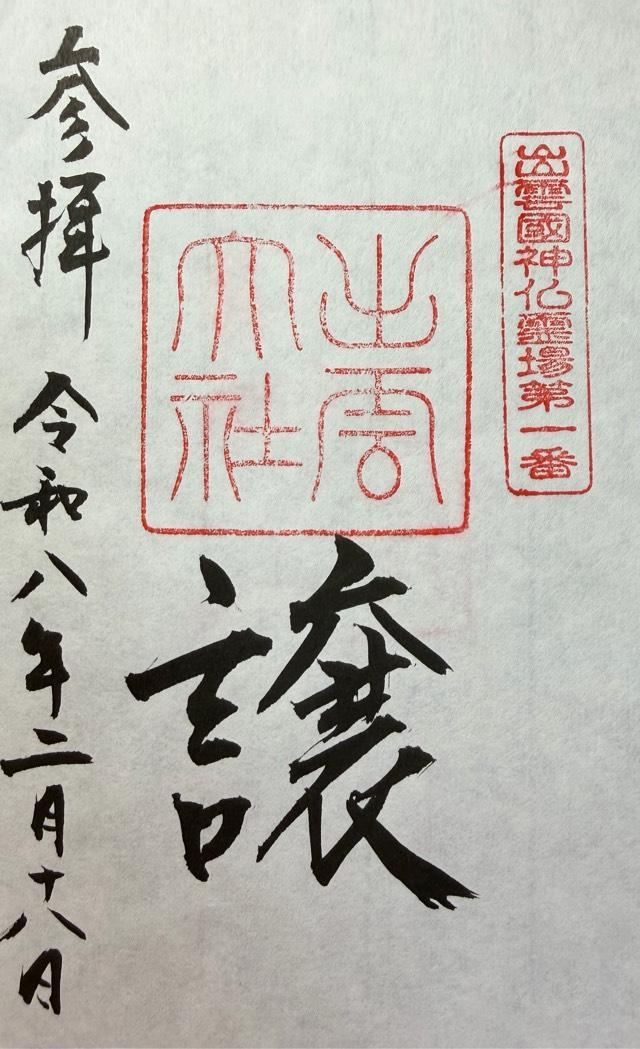 出雲國神仏霊場第一番
出雲
大社
譲
参拝 令和八年二月十八日